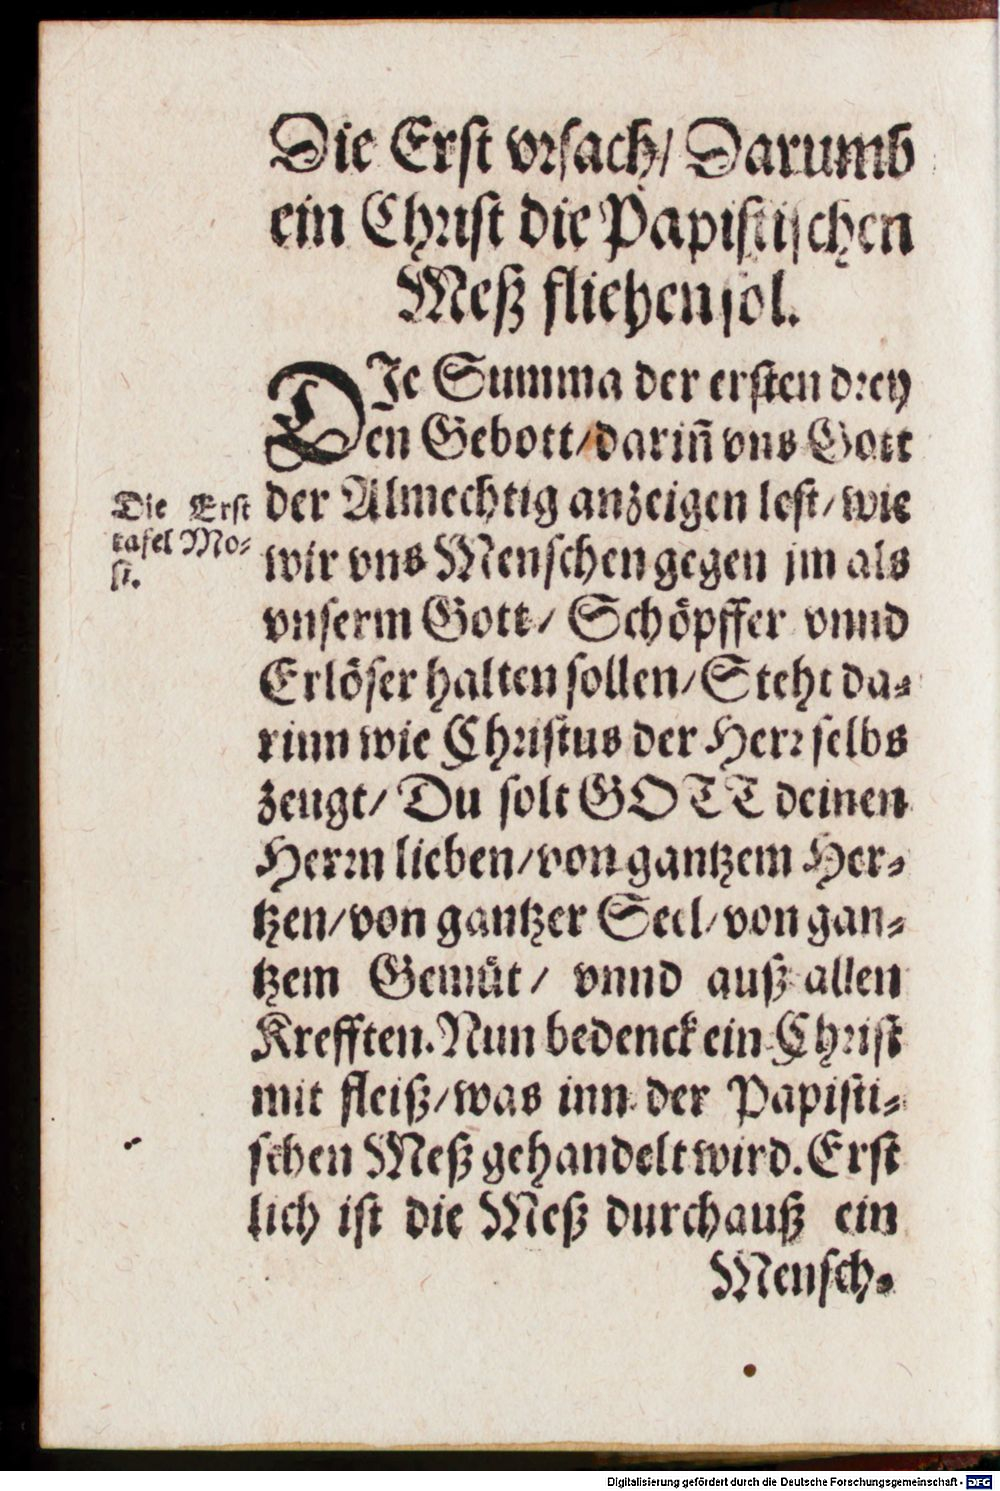 Die Erst vrsach/ Darumb
ein Christ die Papistischen
Meß fliehen sol.
DIe Summa der ersten drey
en Gebott/ dariñ vns Gott
der Almechtig anzeigen lest/ wie
wir vns Menschen gegen jm als
vnserm Gott/ Schöpffer vnnd
Erlöser halten sollen/ Steht da⸗
rinn wie Christus der Herr selbs
zeugt/ Du solt GOTT deinen
Herrn lieben/ von gantzem Her⸗
tzen/ von gantzer Seel/ von gan⸗
tzem Gemuͤt/ vnnd auß allen
Krefften. Nun bedenck ein Christ
mit fleiß/ was inn der Papisti⸗
schen Meß gehandelt wird. Erst
lich ist die Meß durchauß ein
Mensch⸗
Die Erst
tafel Mo⸗
si.
Digitalisierung gefördert durch die Deutsche Forschungsgemeinschaft - DFG